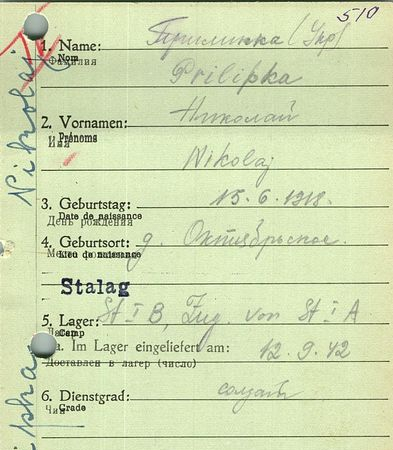 510
1. Name: Прилипка (Укр)
Nom
Фамилия
Prilipka
2. Vornamen: Николай
Prénoms
Имя
Nikolaj
3. Geburtstag: 15.6.1918.
Date de naissance
День рождения
4. Geburtsort: д. Октябрьское.
Lieu de naissance
Stalag
5. Lager: St I B, Zug. von St I A
Camp
a. Im Lager eingeliefert am: 12.9.42
Доставлен в лагерь (число)
6. Dienstgrad: солдат
Grade
Чин
Nikolaj